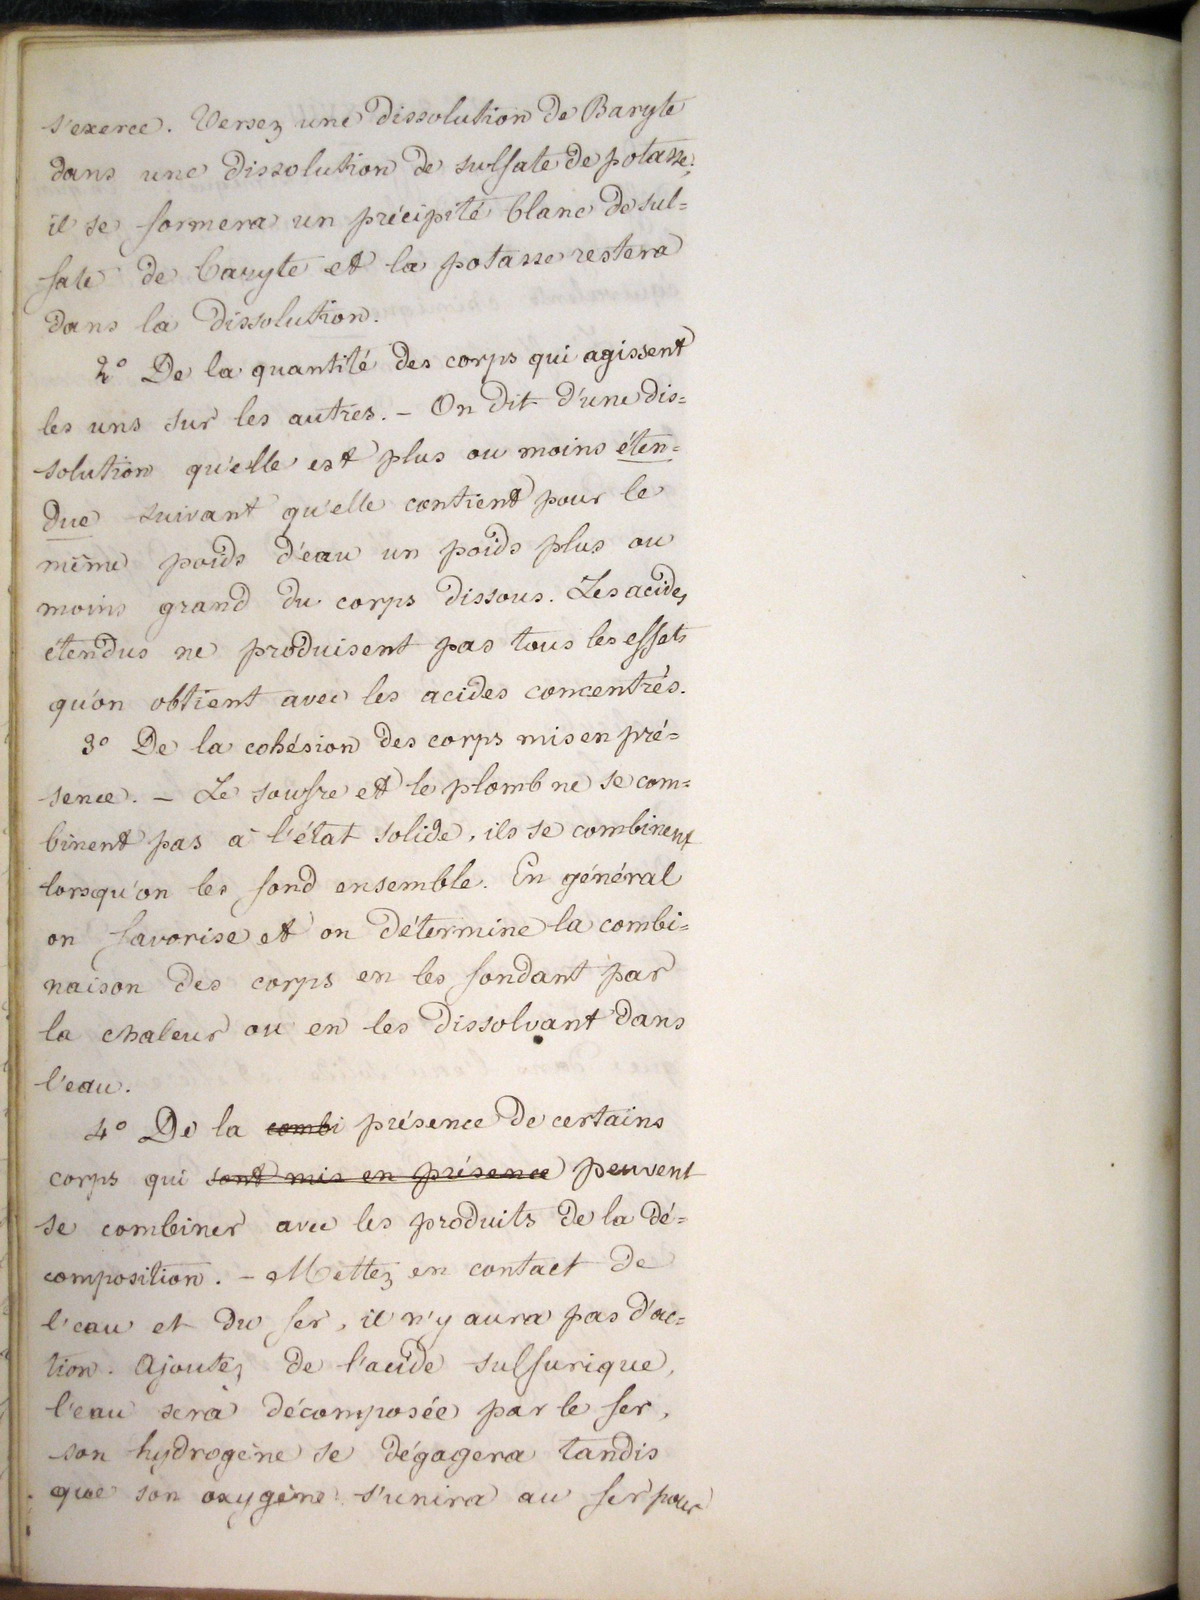 s'exerce. Versez une dissolution de Baryte
dans une dissolution de sulfate de potasse;
il se formera un précipité blanc de sul=
fate de baryte et la potasse restera
dans la dissolution.
2° De la quantité des corps qui agissent
les uns sur les autres. – On dit d'une dis=
solution qu'elle est plus ou moins éten=
due suivant qu'elle contient pour le
même poids d'eau un poids plus ou
moins grand du corps dissous. Les acides
étendus ne produisent pas tous les effets
qu'on obtient avec les acides concentrés.
3° De la cohésion des corps mis en pré=
sence. – Le soufre et le plomb ne se com=
binent pas à l'état solide, ils se combinent
lorsqu'on les fond ensemble. En général
on favorise et on détermine la combi=
naison des corps en les fondant par
la chaleur ou en les dissolvant dans
l'eau.
4° De la combi présence de certains
corps qui sont mis en présence peuvent
se combiner avec les produits de la dé=
composition. – Mettez en contact de
l'eau et du fer, il n'y aura pas d'ac=
tion. Ajoutez de l'acide sulfurique,
l'eau sera décomposée par le fer,
son hydrogène se dégagera tandis
que son oxygène s'unira au fer pour